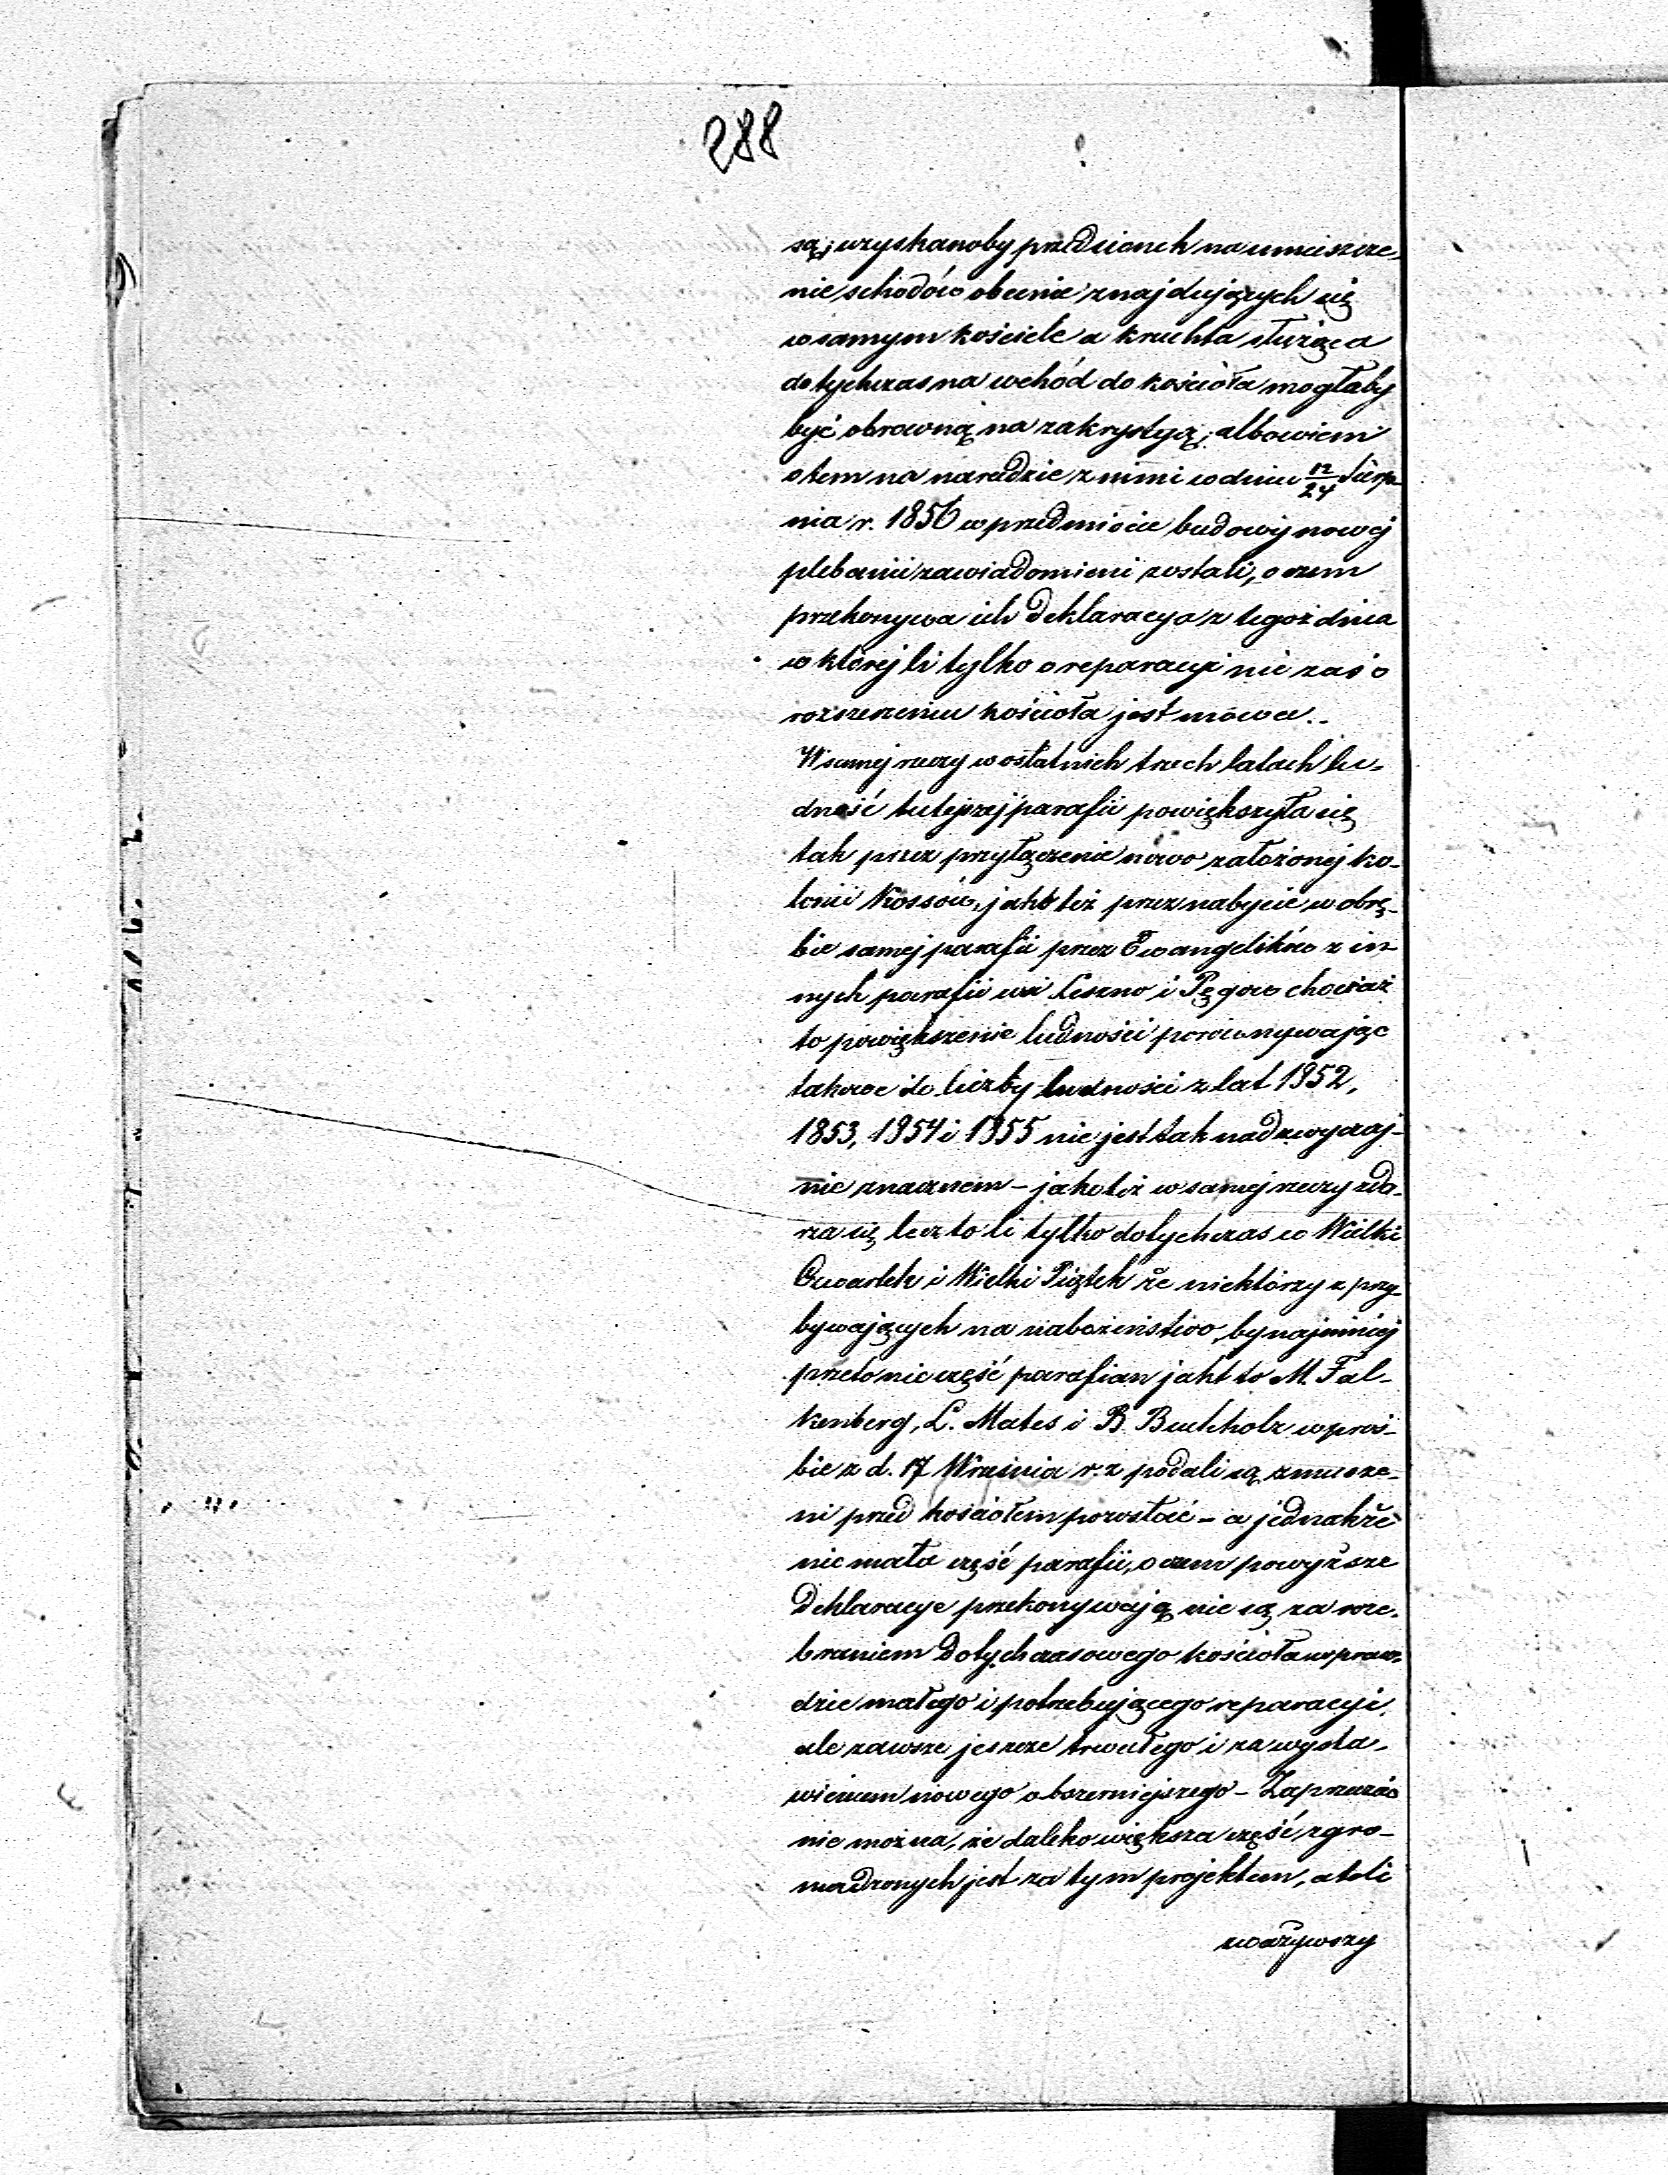 288
są; uzyskanoby przedsionek na umieszcze-
nie schodów obecnie znajdujących się
w samym kościele a kruchta służąca
dotychczas na wchód do kościoła mogłaby
być obrowną na zakrystyą; albowiem
o tem na naradzie z nimi w dniu 12/24 Sierp-
nia r. 1856 w przedmiocie budowy nowej
plebanii zawiadomieni zostali, o czem
przekonywa ich Deklaracya z tegoż dnia
w której li tylko o reparacyi nie zaś o
rozszerzeniu kościoła jest mowa.-
W samej rzeczy w ostatnich trzech latach lu-
dność tutejszej parafii powiększyła się
tak przez przyłączenie nowo założonej ko-
lonii Kossów, jakoteż przez nabycie w obrę-
bie samej parafii przez Ewangelików z in-
nych parafii wsi Leszno i Pęgow chociaż
to powiększenie ludności porównywając
takowe do liczby ludności z lat 1852,
1853, 1854 i 1855 nie jest tak nadzwyczaj-
nie znacznem - jakoteż w samej rzeczy zda-
rza się lecz to li tylko dotychczas w Wielki
Czwartek i Wielki Piątek że niektórzy z przy-
bywających na nabożeństwo, bynajmniej
przeto nie część parafian jakt to M. Fal-
kenberg, L. Mates i B. Buchholz w proś-
bie z d. 17 Września r. z podali są zmusze-
ni przed kościołem pozostać - a jednakże
nie mała część parafii, o czem powyższe
Deklaracye przekonywają nie są za roze-
braniem Dotychczasowego kościoła wpraw-
dzie małego i potrzebującego reparacyi,
ale zawsze jeszcze trwałego i za wysta-
wieniem nowego obszerniejszego - Zaprzeczać
nie można, że daleko większa część zgro-
madzonych jest za tym projektem, atoli
zważywszy